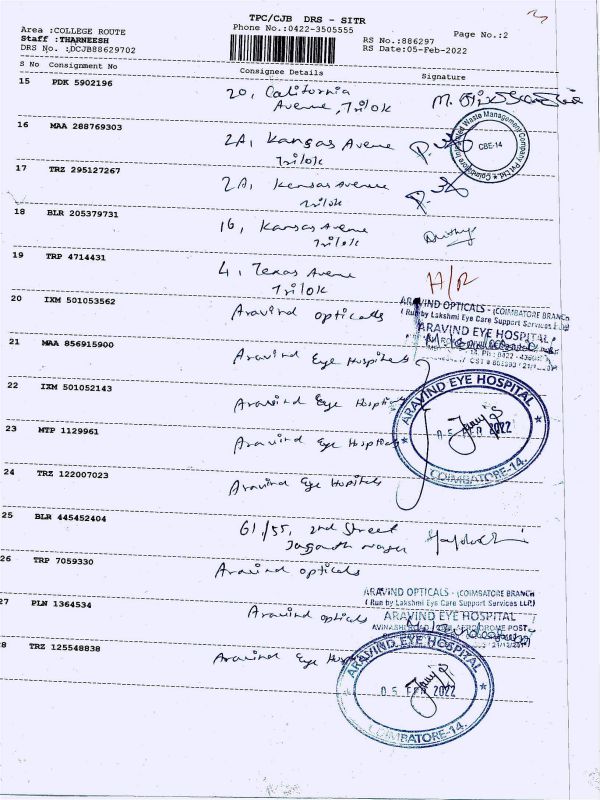 TPC/CJB DRS - SITR
Phone No.:0422-3505555
Area :COLLEGE ROUTE
Staff :THARNEESH
DRS No. :DCJB88629702
RS No.:886297
RS Date:05-Feb-2022
Page No.:2
S No Consignment No Consignee Details Signature
15 PDK 5902196 20, California
Avenue, Trilok
16 MAA 288769303 2A, Kansas Avenue
Trilok
Coimbatore Integrated Waste Management Company Pvt Ltd.
CBE-14
17 TRZ 295127267 2A, Kansas Avenue
Trilok
18 BLR 205379731 16, Kansas Avenue
Trilok
19 TRP 4714431 4, Texas Avenue
Trilok
H/R
20 IXM 501053562 Aravind opticals
ARAVIND OPTICALS - (COIMBATORE BRANCH
( Run by Lakshmi Eye Care Support Services
ARAVIND EYE HOSPITAL
21 MAA 856915900 Aravind Eye Hospitals
22 IXM 501052143 Aravind Eye Hospitals
ARAVIND EYE HOSPITAL
05 FEB 2022
COIMBATORE-14.
23 MTP 1129961 Aravind Eye Hospitals
24 TRZ 122007023 Aravind Eye Hospitals
25 BLR 445452404 61/55, 2nd Street
Jagganath nagar
26 TRP 7059330 Aravind opticals
27 PLN 1364534 Aravind opticals
ARAVIND OPTICALS - (COIMBATORE BRANCH
( Run by Lakshmi Eye Care Support Services LLP)
ARAVIND EYE HOSPITAL
AVINASHI ROAD AERODROME POST
28 TRZ 125548838 Aravind Eye Hospitals
ARAVIND EYE HOSPITAL
05 FEB 2022
COIMBATORE-14.